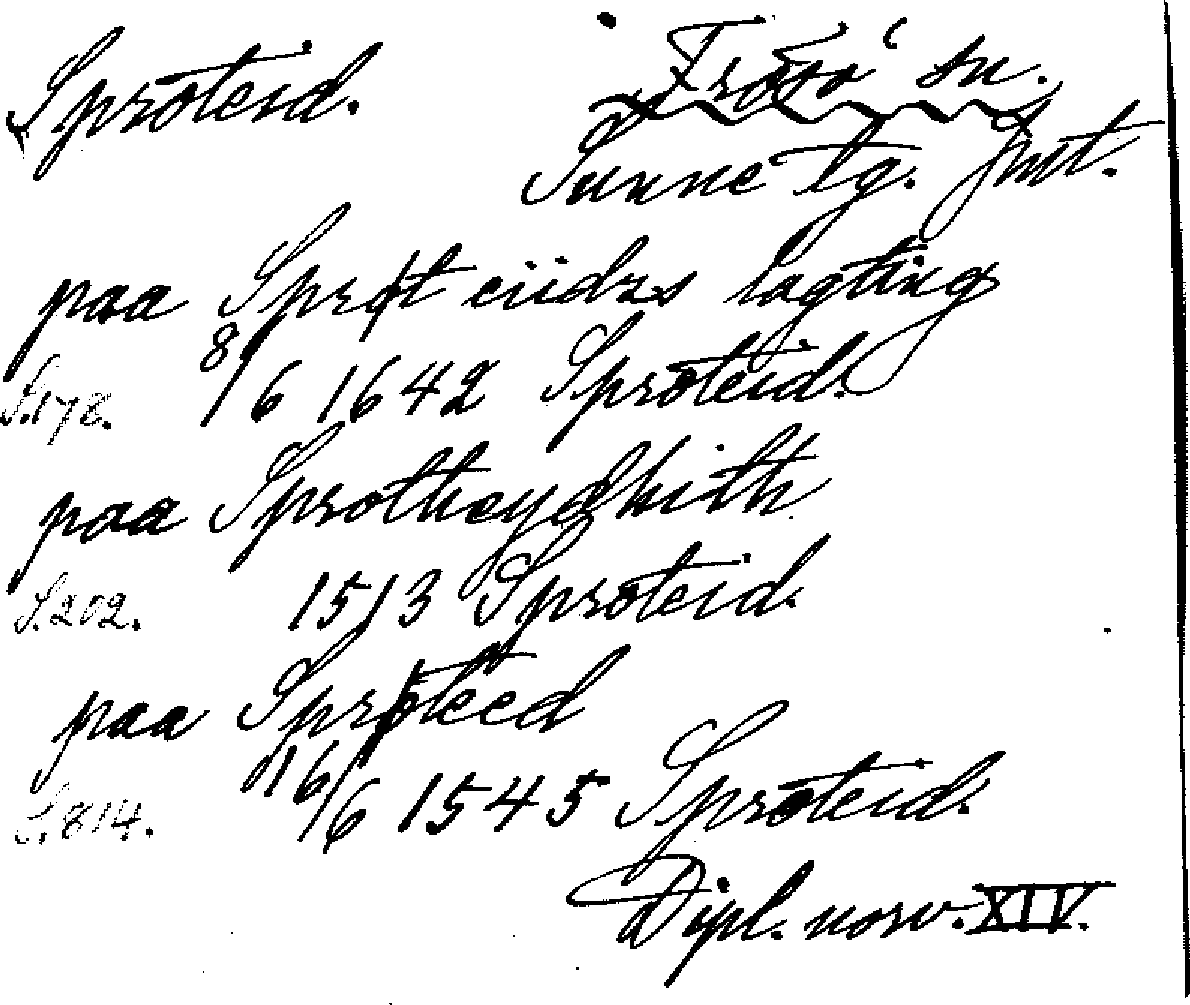 Sproteid.
Frösö sn.
Sunne tg. Jmt.
paa Sprøt eiidzs lagting
S.178. 8/6 1642 Sproteid.
paa Sprotheydhith
S.202. 1513 Sproteid.
paa Sprøteed
S.814. 16/6 1545 Sproteid.
Dipl. norv. XIV.